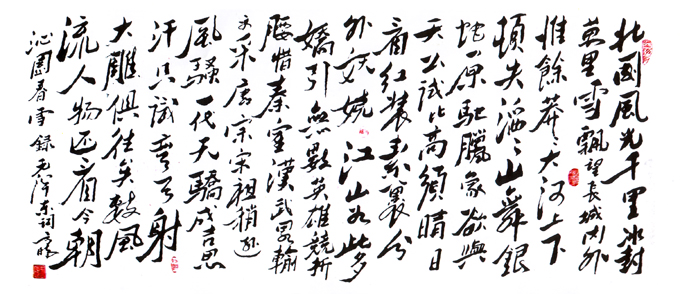 北國風光千里冰封
萬里雪飄望長城內外
惟餘莽〻大河上下
頓失滔〻山舞銀
蛇原馳臘象欲與
天公試比高須晴日
看紅裝素裹分
外妖嬈江山如此多
嬌引無數英雄競折
腰惜秦皇漢武略輸
文采唐宗宋祖稍遜
風騷一代天驕成吉思
汗只識彎弓射
大雕俱往矣數風
流人物还看今朝
沁園春雪錄毛泽东詞